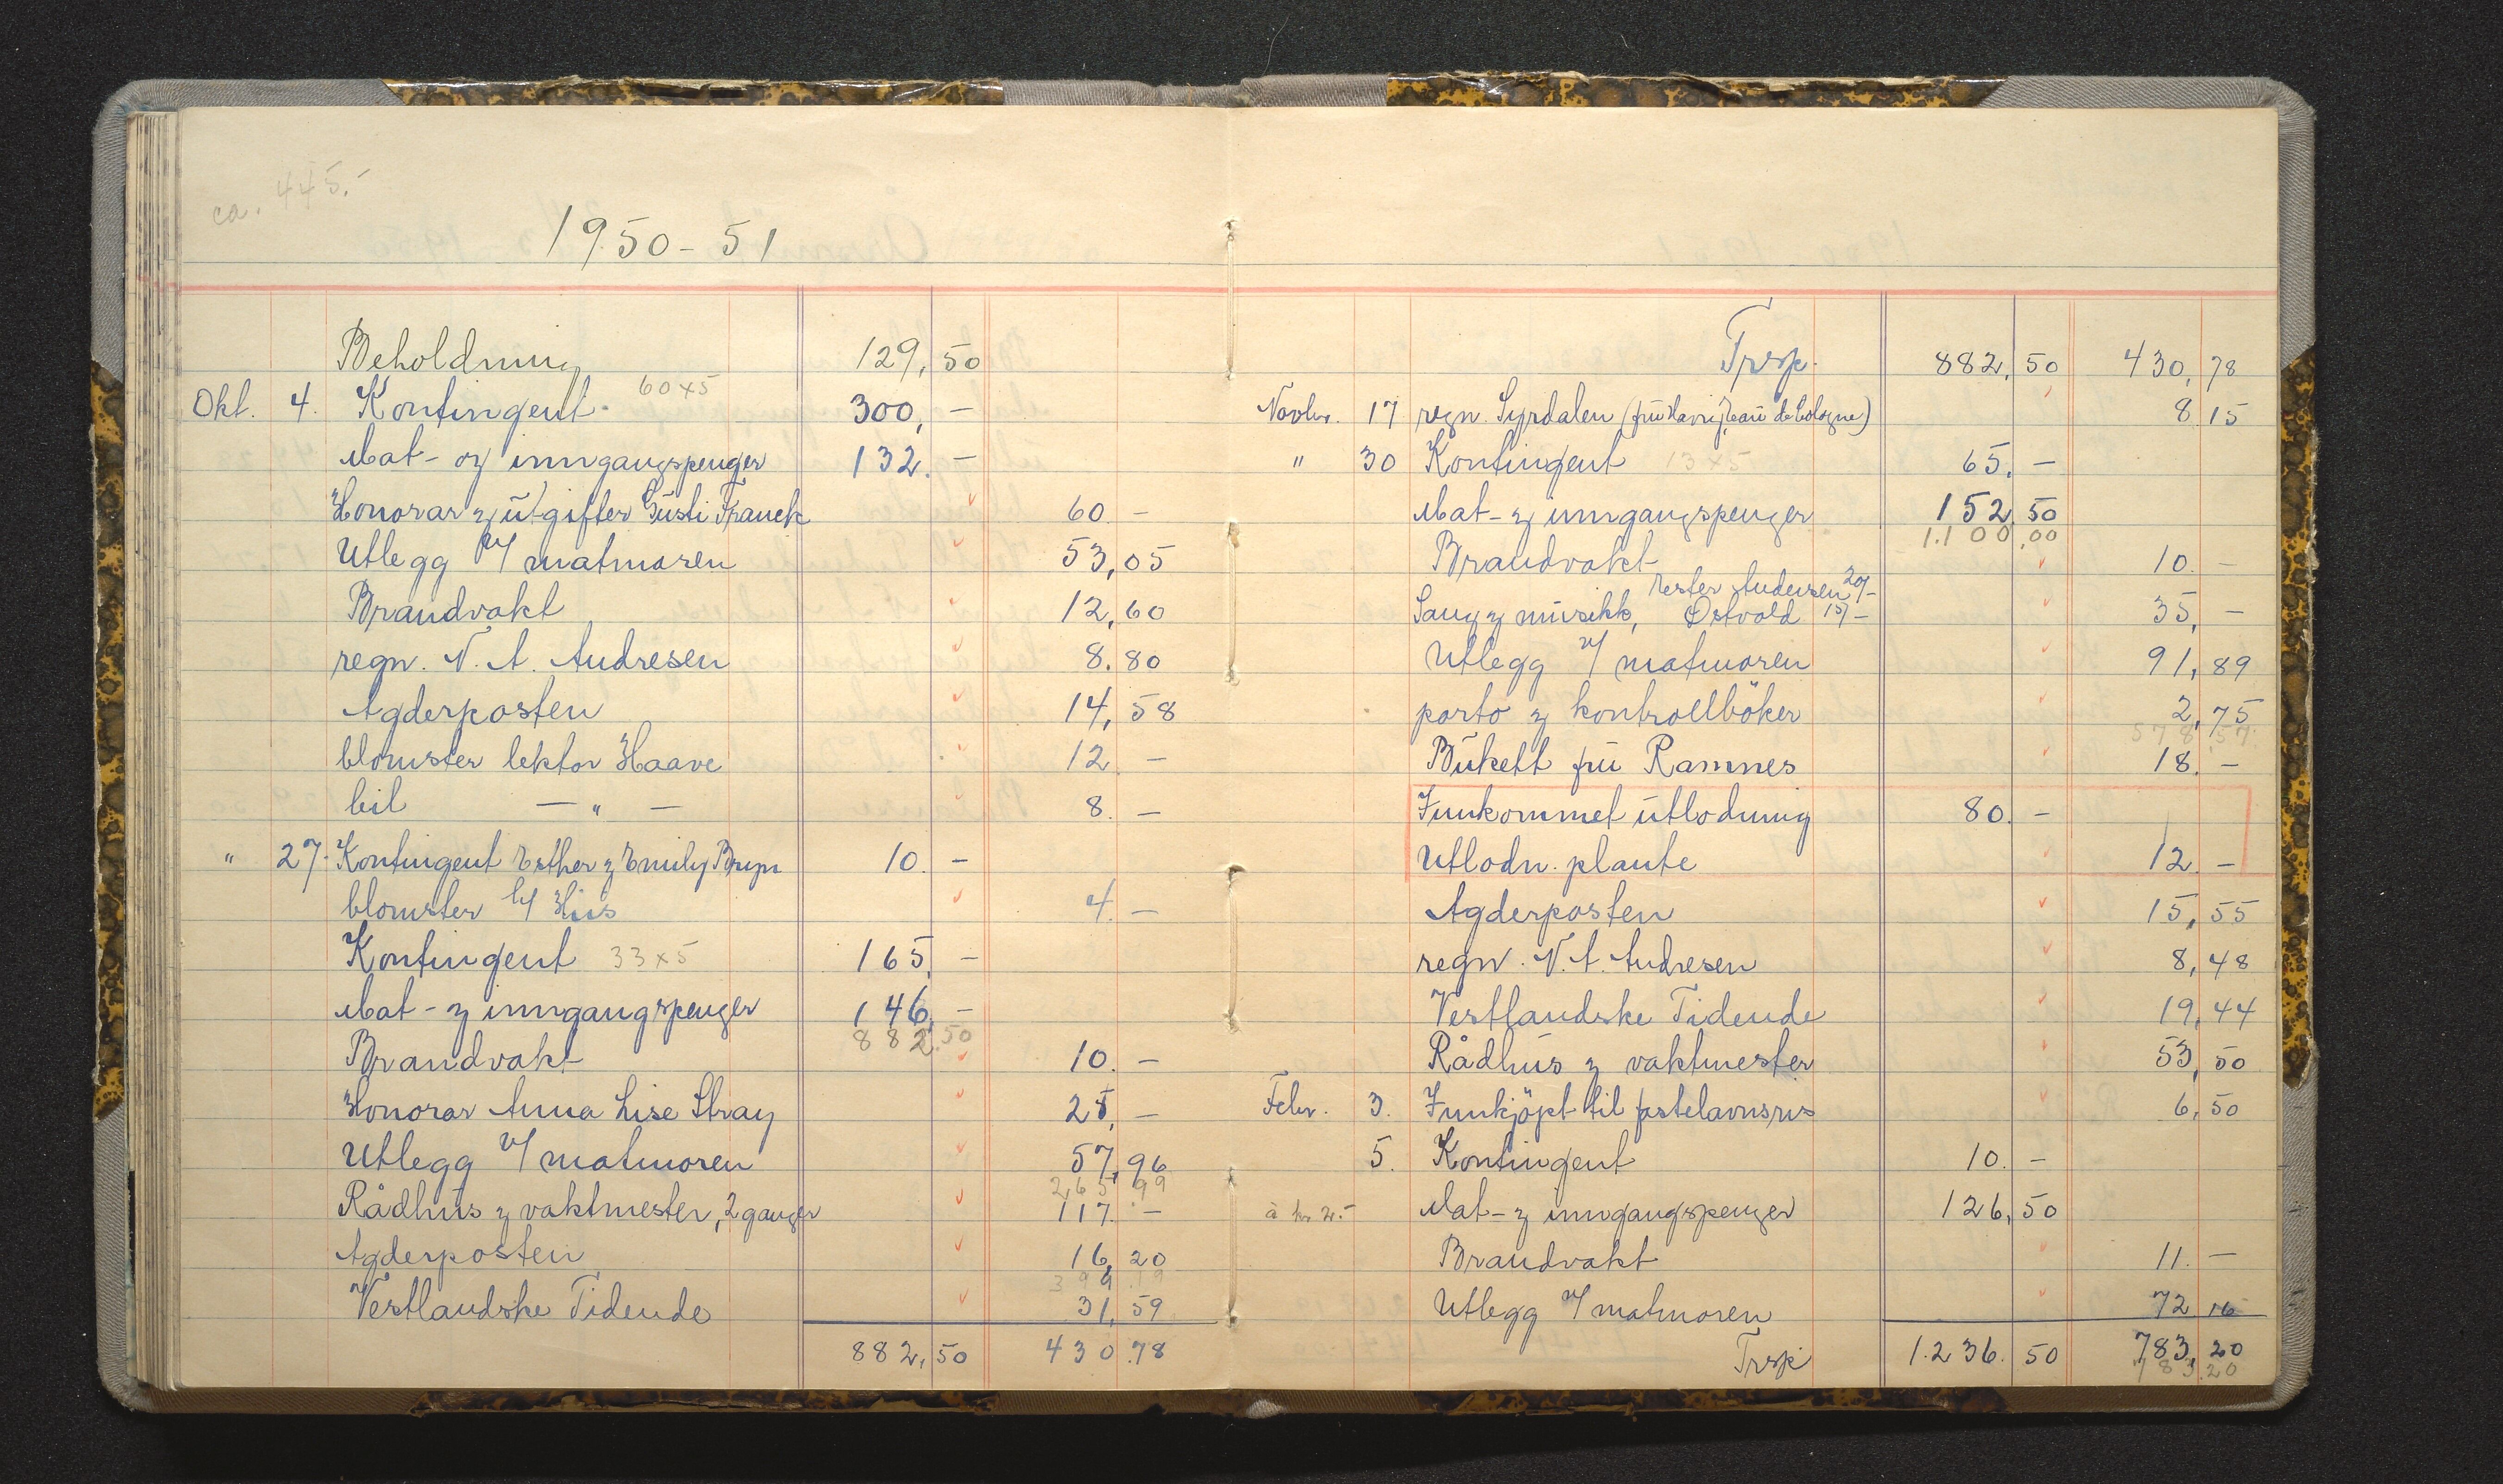 ca. 445.-
1950-51
Beholdning 129,50
Okt. 4. Kontingent. 60x5 300,-
Mat- og inngangspenger 132.-
Honorar & utgifter Gusti Franck 60 -
Utlegg v/ matmoren 53,05
Brandvakt 12,60
regn. N. A. Andresen 8.80
Agderposten 14,58
blomster lektor Haave 12. -
bil - " - 8. -
" 27. Kontingent Esther & Emily Bryn 10. -
blomster 4. -
Kontingent 33x5 165, -
Mat- & inngangspenger 146, -
882.50
Brandvakt 10. -
Honorar Anna Lise Stray 25, -
Utlegg v/ matmoren 57,96
265 99
Rådhus & vaktmester, 2 ganger 117. -
Agderposten 16,20
399.19
Vestlandske Tidende 31,59
882,50 430.78
Trsp. 882,50 430,78
Novbr. 17 regn. Syrdalen 8.15
" 30 Kontingent 13x5 65. -
Mat- & inngangspenger 152.50
1.100,00
Brandvakt 10. -
Ester Andersen 20/-
Sang & musikk, Østvold 15/- 35, -
Utlegg v/ matmoren 91,89
porto & kontrollböker 2,75
578.57
Bukett fru Ramnes 18. -
Innkommet utlodning 80. -
Utlodn. plante 12 -
Agderposten 15,55
regn. N. A. Andresen 8,48
Vestlandske Tidende 19,44
Rådhus & vaktmester 53,50
Febr. 3. Innkjöpt til fastelavnsris 6,50
5. Kontingent 10. -
à kr 2.- Mat- & inngangspenger 126,50
Brandvakt 11. -
Utlegg v/ matmoren 72 16
Trsp 1.236.50 783,20
783.20